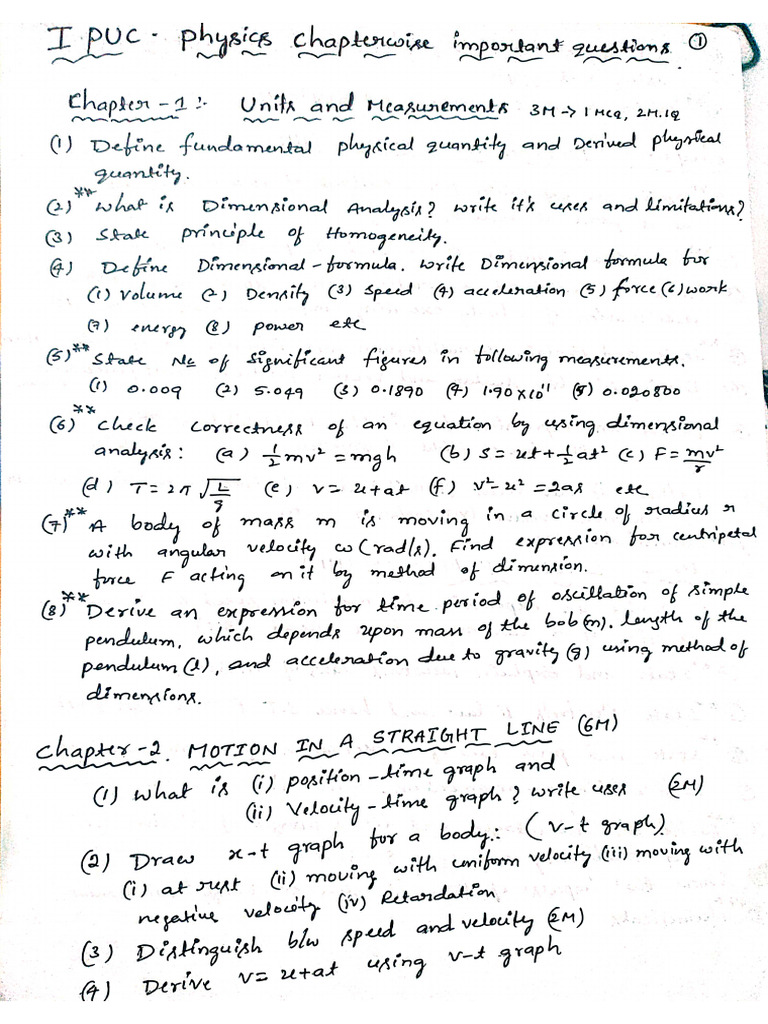 I PUC - Physics Chapterwise important questions. ①
Chapter - 1 :- Units and Measurements 3M → 1 MCQ, 2M.1Q
(1) Define fundamental physical quantity and Derived physical
quantity.
(2)** What is Dimensional Analysis? Write it's uses and limitations?
(3) State principle of Homogeneity.
(4) Define Dimensional-formula. Write Dimensional formula for
(1) Volume (2) Density (3) Speed (4) acceleration (5) force (6) work
(7) energy (8) power etc
(5)** State No of significant figures in following measurements.
(1) 0.009 (2) 5.049 (3) 0.1890 (4) 1.90 × 10¹¹ (5) 0.020800
(6)** Check correctness of an equation by using dimensional
analysis: (a) ½mv² = mgh (b) S = ut + ½at² (c) F = mv²/r
(d) T = 2π√(L/g) (e) v = u + at (f) v² - u² = 2as etc
(7)** A body of mass m is moving in a circle of radius r
with angular velocity ω (rad/s). Find expression for centripetal
force F acting on it by method of dimension.
(8)** Derive an expression for time period of oscillation of simple
pendulum, which depends upon mass of the bob (m). length of the
pendulum (l), and acceleration due to gravity (g) using method of
dimensions.
Chapter - 2. MOTION IN A STRAIGHT LINE (6M)
(1) What is (i) position-time graph and
(ii) Velocity-time graph? Write uses (2M)
(2) Draw x-t graph for a body:. (v-t graph)
(i) at rest (ii) moving with uniform velocity (iii) moving with
negative velocity (iv) Retardation
(3) Distinguish b/w speed and velocity (2M)
(4) Derive v = u + at using v-t graph